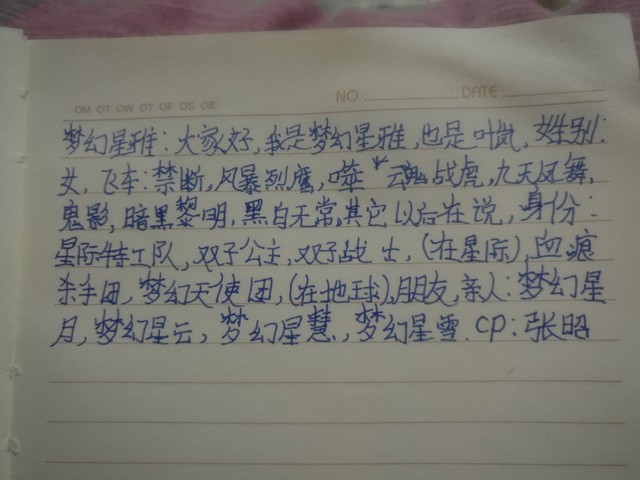 OM OT OW OT OF OS OB
NO. DATE
梦幻星雅：大家好，我是梦幻星雅，也是叶岚，姓别：
女，飞车：禁断，风暴烈鹰，噬魂战虎，九天凤舞，
鬼影，暗黑黎明，黑白无常，其它以后在说，身份：
星际特工队，双子公主，双子战士，（在星际），血痕
杀手团，梦幻天使团，（在地球），朋友，亲人：梦幻星
月，梦幻星云，梦幻星慧，梦幻星雪．CP：张昭